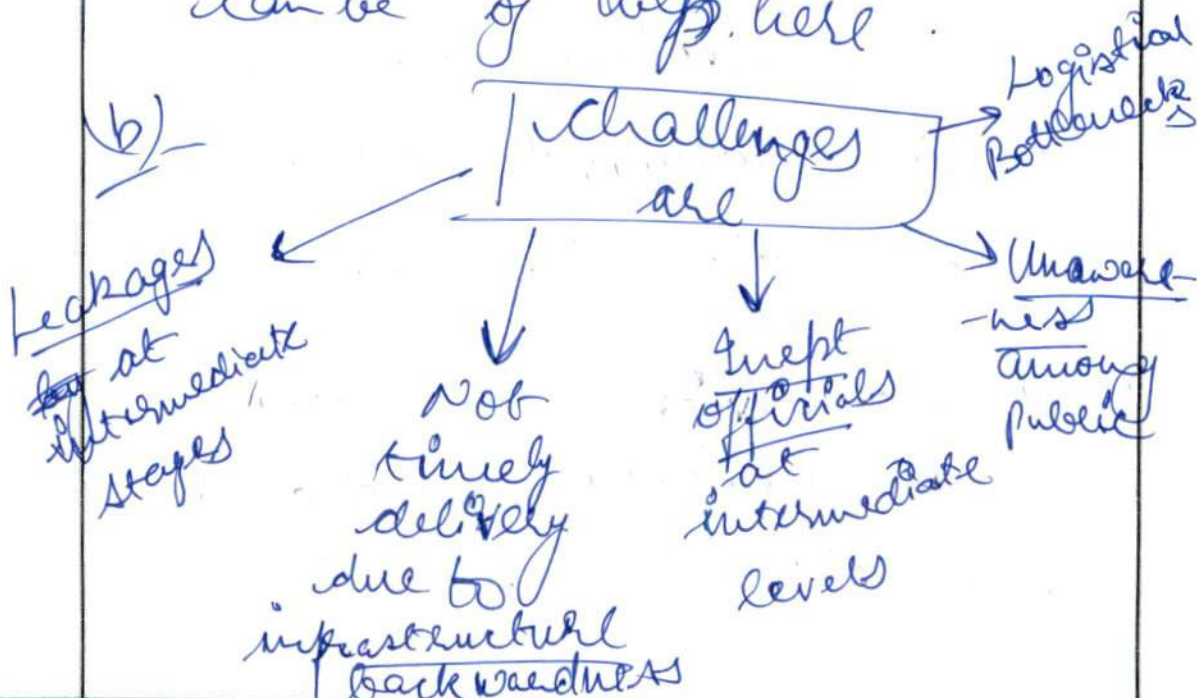 can be of help here.
b)
Challenges
are
Logistical
Bottlenecks
Leakages
at
intermediate
stages
Not
timely
delivery
due to
infrastructure
backwardness
Inept
officials
at
intermediate
levels
Unaware-
-ness
among
public